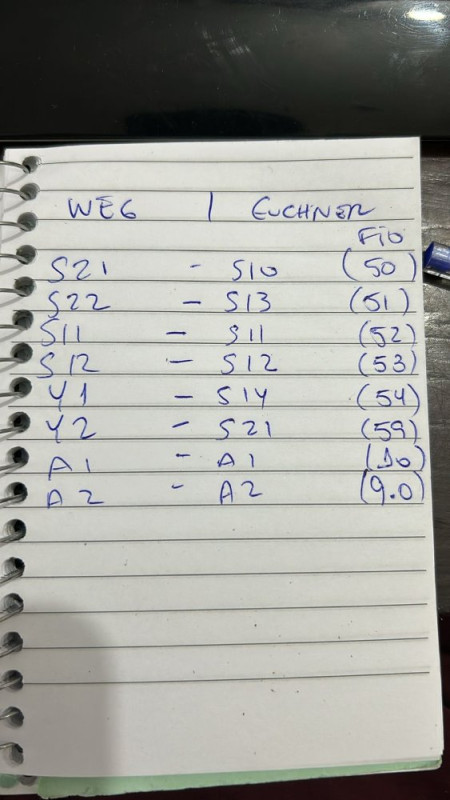 WEG | EUCHNER
FIO
S21 - S10 (50)
S22 - S13 (51)
S11 - S11 (52)
S12 - S12 (53)
Y1 - S14 (54)
Y2 - S21 (59)
A1 - A1 (10)
A2 - A2 (9.0)